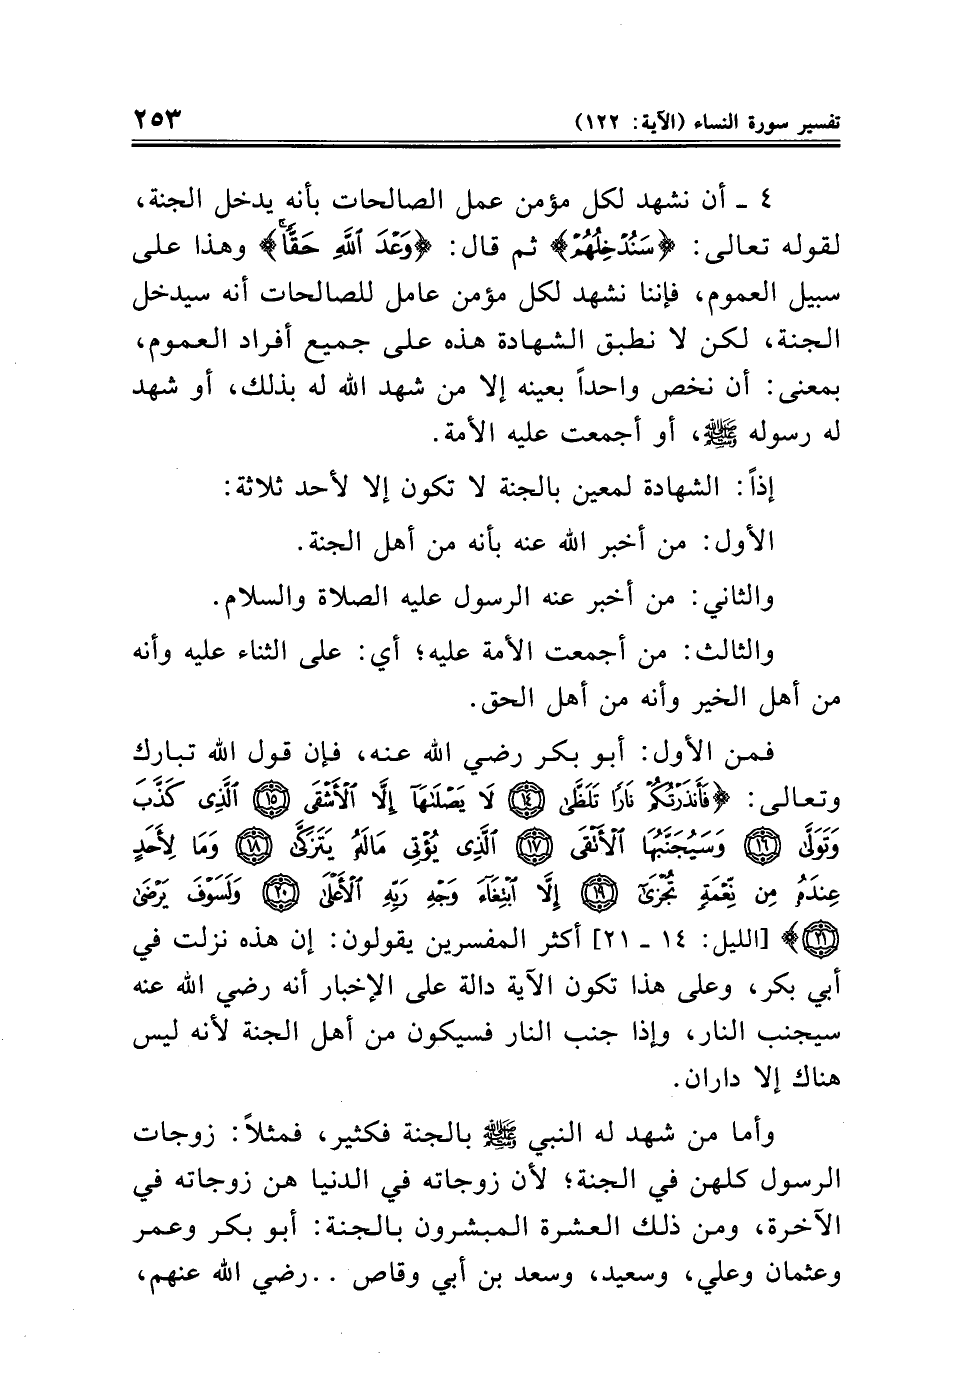 تفسير سورة النساء (الآية: ١٢٢) ٢٥٣
٤ ـ أن نشهد لكل مؤمن عمل الصالحات بأنه يدخل الجنة،
لقوله تعالى: ﴿سَنُدْخِلُهُمْ﴾ ثم قال: ﴿وَعْدَ ٱللَّهِ حَقًّا﴾ وهذا على
سبيل العموم، فإننا نشهد لكل مؤمن عامل للصالحات أنه سيدخل
الجنة، لكن لا نطبق الشهادة هذه على جميع أفراد العموم،
بمعنى: أن نخص واحداً بعينه إلا من شهد الله له بذلك، أو شهد
له رسوله ﷺ، أو أجمعت عليه الأمة.
إذاً: الشهادة لمعين بالجنة لا تكون إلا لأحد ثلاثة:
الأول: من أخبر الله عنه بأنه من أهل الجنة.
والثاني: من أخبر عنه الرسول عليه الصلاة والسلام.
والثالث: من أجمعت الأمة عليه؛ أي: على الثناء عليه وأنه
من أهل الخير وأنه من أهل الحق.
فمن الأول: أبو بكر رضي الله عنه، فإن قول الله تبارك
وتعالى: ﴿فَأَنذَرْتُكُمْ نَارًا تَلَظَّىٰ ١٤ لَا يَصْلَىٰهَآ إِلَّا ٱلْأَشْقَى ١٥ ٱلَّذِى كَذَّبَ
وَتَوَلَّىٰ ١٦ وَسَيُجَنَّبُهَا ٱلْأَتْقَى ١٧ ٱلَّذِى يُؤْتِى مَالَهُۥ يَتَزَكَّىٰ ١٨ وَمَا لِأَحَدٍ
عِندَهُۥ مِن نِّعْمَةٍ تُجْزَىٰٓ ١٩ إِلَّا ٱبْتِغَآءَ وَجْهِ رَبِّهِ ٱلْأَعْلَىٰ ٢٠ وَلَسَوْفَ يَرْضَىٰ
٢١﴾ [الليل: ١٤ ـ ٢١] أكثر المفسرين يقولون: إن هذه نزلت في
أبي بكر، وعلى هذا تكون الآية دالة على الإخبار أنه رضي الله عنه
سيجنب النار، وإذا جنب النار فسيكون من أهل الجنة لأنه ليس
هناك إلا داران.
وأما من شهد له النبي ﷺ بالجنة فكثير، فمثلاً: زوجات
الرسول كلهن في الجنة؛ لأن زوجاته في الدنيا هن زوجاته في
الآخرة، ومن ذلك العشرة المبشرون بالجنة: أبو بكر وعمر
وعثمان وعلي، وسعيد، وسعد بن أبي وقاص .. رضي الله عنهم،